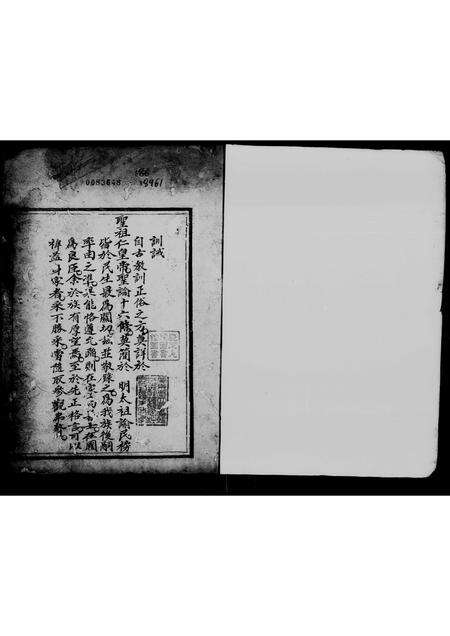 186
0083648 19961
訓誡
自古教訓正俗之方莫詳於
聖祖仁皇帝聖諭十六條莫簡於 明太祖諭民榜
皆於民生最為關切故並敬錄之為我族後嗣
率由之準果能恪遵允蹈則在家為 在國
為良民余於族有厚望焉至於先正格言可以
裨益身家者采不勝采嘗隨取參觀